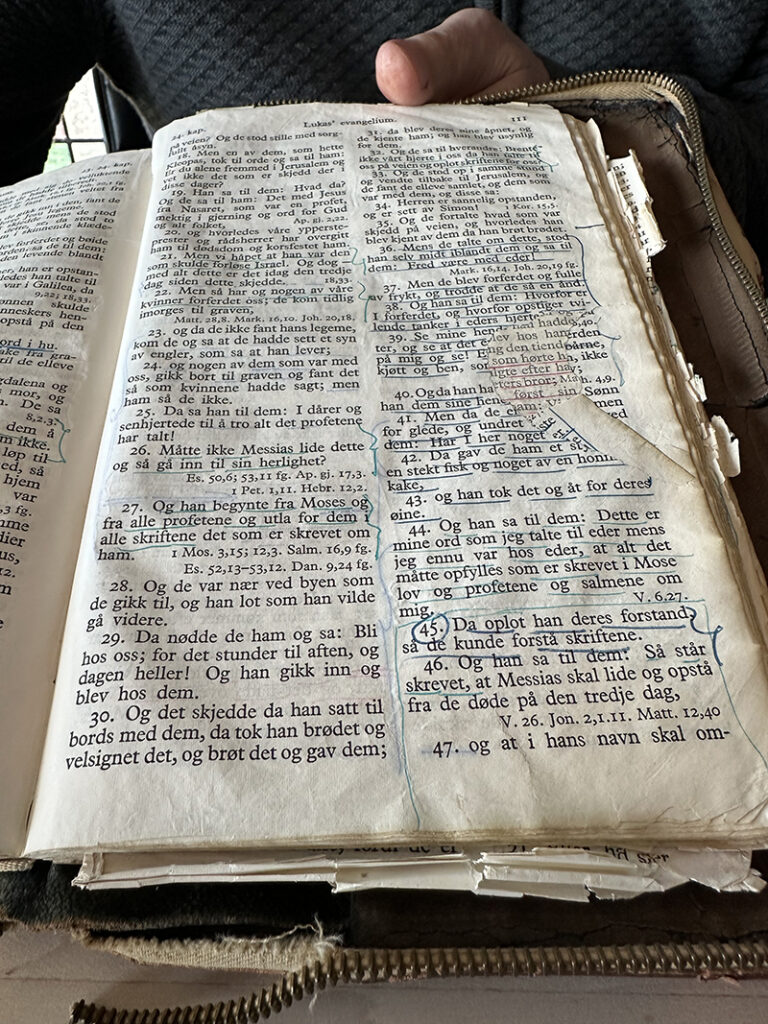 23. 24. kap.
er forferdet og bøide
sa de til dem:
den levende blandt
her, han er opstan-
ledes han talte til
var i Galilea, da
9,22; 18,33.
ønnen skulde
nneskers hen-
opstå på den
ord i hu.
ake fra gra-
til de elleve
gdalena og
s mor, og
De sa
8,2.3.
dem å
m ikke.
løp til
ed, så
hjem
var
,3 fg.
mme
dier
us,
12.
m
24. kap.
Lukas' evangelium.
111
på veien? Og de stod stille med sorg-
fullt åsyn.
18. Men en av dem, som hette
Kleopas, tok til orde og sa til ham:
Er du alene fremmed i Jerusalem og
vet ikke det som er skjedd der i
disse dager?
19. Han sa til dem: Hvad da?
Og de sa til ham: Det med Jesus
fra Nasaret, som var en profet,
mektig i gjerning og ord for Gud
og alt folket, Ap. gj. 2,22.
20. og hvorledes våre ypperste-
prester og rådsherrer har overgitt
ham til dødsdom og korsfestet ham.
21. Men vi håpet at han var den
som skulde forløse Israel. Og dog —
med alt dette er det idag den tredje
dag siden dette skjedde. 18,33.
22. Men så har og nogen av våre
kvinner forferdet oss; de kom tidlig
imorges til graven,
Matt. 28,8. Mark. 16,10. Joh. 20,18.
23. og da de ikke fant hans legeme,
kom de og sa at de hadde sett et syn
av engler, som sa at han lever;
24. og nogen av dem som var med
oss, gikk bort til graven og fant det
så som kvinnene hadde sagt; men
ham så de ikke.
25. Da sa han til dem: I dårer og
senhjertede til å tro alt det profetene
har talt!
26. Måtte ikke Messias lide dette
og så gå inn til sin herlighet?
Es. 50,6; 53,11 fg. Ap. gj. 17,3.
1 Pet. 1,11. Hebr. 12,2.
27. Og han begynte fra Moses og
fra alle profetene og utla for dem i
alle skriftene det som er skrevet om
ham. 1 Mos. 3,15; 12,3. Salm. 16,9 fg.
Es. 52,13–53,12. Dan. 9,24 fg.
28. Og de var nær ved byen som
de gikk til, og han lot som han vilde
gå videre.
29. Da nødde de ham og sa: Bli
hos oss; for det stunder til aften, og
dagen heller! Og han gikk inn og
blev hos dem.
30. Og det skjedde da han satt til
bords med dem, da tok han brødet og
velsignet det, og brøt det og gav dem;
31. da blev deres øine åpnet, og
de kjente ham; og han blev usynlig
for dem.
32. Og de sa til hverandre: Brente
ikke vårt hjerte i oss da han talte til
oss på veien og oplot skriftene for oss?
33. Og de stod op i samme stund
og vendte tilbake til Jerusalem, og
de fant de elleve samlet, og dem som
var med dem, og disse sa:
34. Herren er sannelig opstanden,
og er sett av Simon! 1 Kor. 15,5.
35. Og de fortalte hvad som var
skjedd på veien, og hvorledes han
blev kjent av dem da han brøt brødet.
36. Mens de talte om dette, stod
han selv midt iblandt dem og sa til
dem: Fred være med eder!
Mark. 16,14. Joh. 20,19 fg.
37. Men de blev forferdet og fulle
av frykt, og trodde at de så en ånd.
38. Og han sa til dem: Hvorfor er
I forferdet, og hvorfor opstiger tvi-
lende tanker i eders hjerter
39. Se mine hen
ter, og se at det e
på mig og se! E
kjøtt og ben, so
40. Og da han ha
han dem sine hen
41. Men da de
for glede, og undret
dem: Har I her noget
42. Da gav de ham et
en stekt fisk og noget av en honn
kake,
43. og han tok det og åt for deres
øine.
44. Og han sa til dem: Dette er
mine ord som jeg talte til eder mens
jeg ennu var hos eder, at alt det
måtte opfylles som er skrevet i Mose
lov og profetene og salmene om
mig. V. 6.27.
45. Da oplot han deres forstand,
så de kunde forstå skriftene.
46. Og han sa til dem: Så står
skrevet, at Messias skal lide og opstå
fra de døde på den tredje dag,
V. 26. Jon. 2,1.11. Matt. 12,40
47. og at i hans navn skal om-